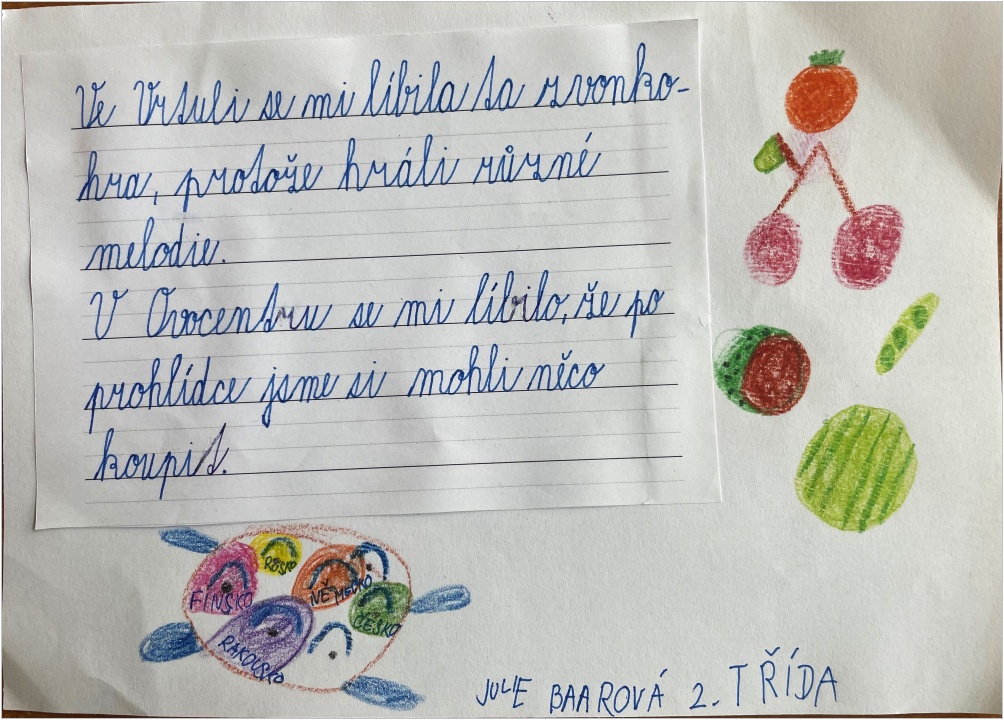 Ve Vrtuli se mi líbila ta zvonko-
hra, protože hráli různé
melodie.
V Ovocentru se mi líbilo, že po
prohlídce jsme si mohli něco
koupit.
FINSKO
RŮSKO
NĚMECKO
ČESKO
RAKOUSKO
JULIE BAAROVÁ 2. TŘÍDA